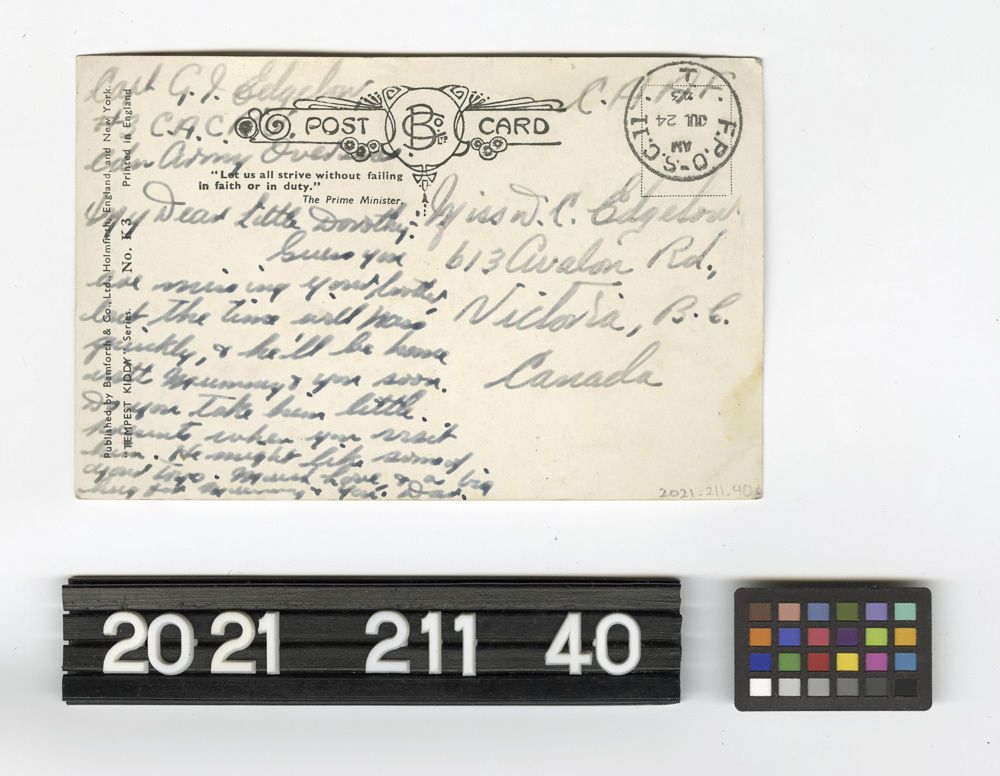 Capt G. J. Edgelow
C.A.C.
Can Army Overseas
C.A.P.F.
POST CARD
B Co Ltd
"Let us all strive without failing
in faith or in duty."
The Prime Minister.
F.P.O-S.C 11
T
AM
JUL 24
43
Published by Bamforth & Co., Ltd., Holmfirth, England, and New York.
"TEMPEST KIDDY" Series. No. K 3 Printed in England
My Dear little Dorothy:
Guess you
are missing your brother
but the time will pass
quickly, & he'll be home
with Mummy & you soon.
Do you take him little
presents when you visit
him. He might like some of
your toys. Much love & a big
hug for Mummy & you. Dad.
Miss D. C. Edgelow
613 Avalon Rd.,
Victoria, B.C.
Canada
2021.211.40
2021 211 40